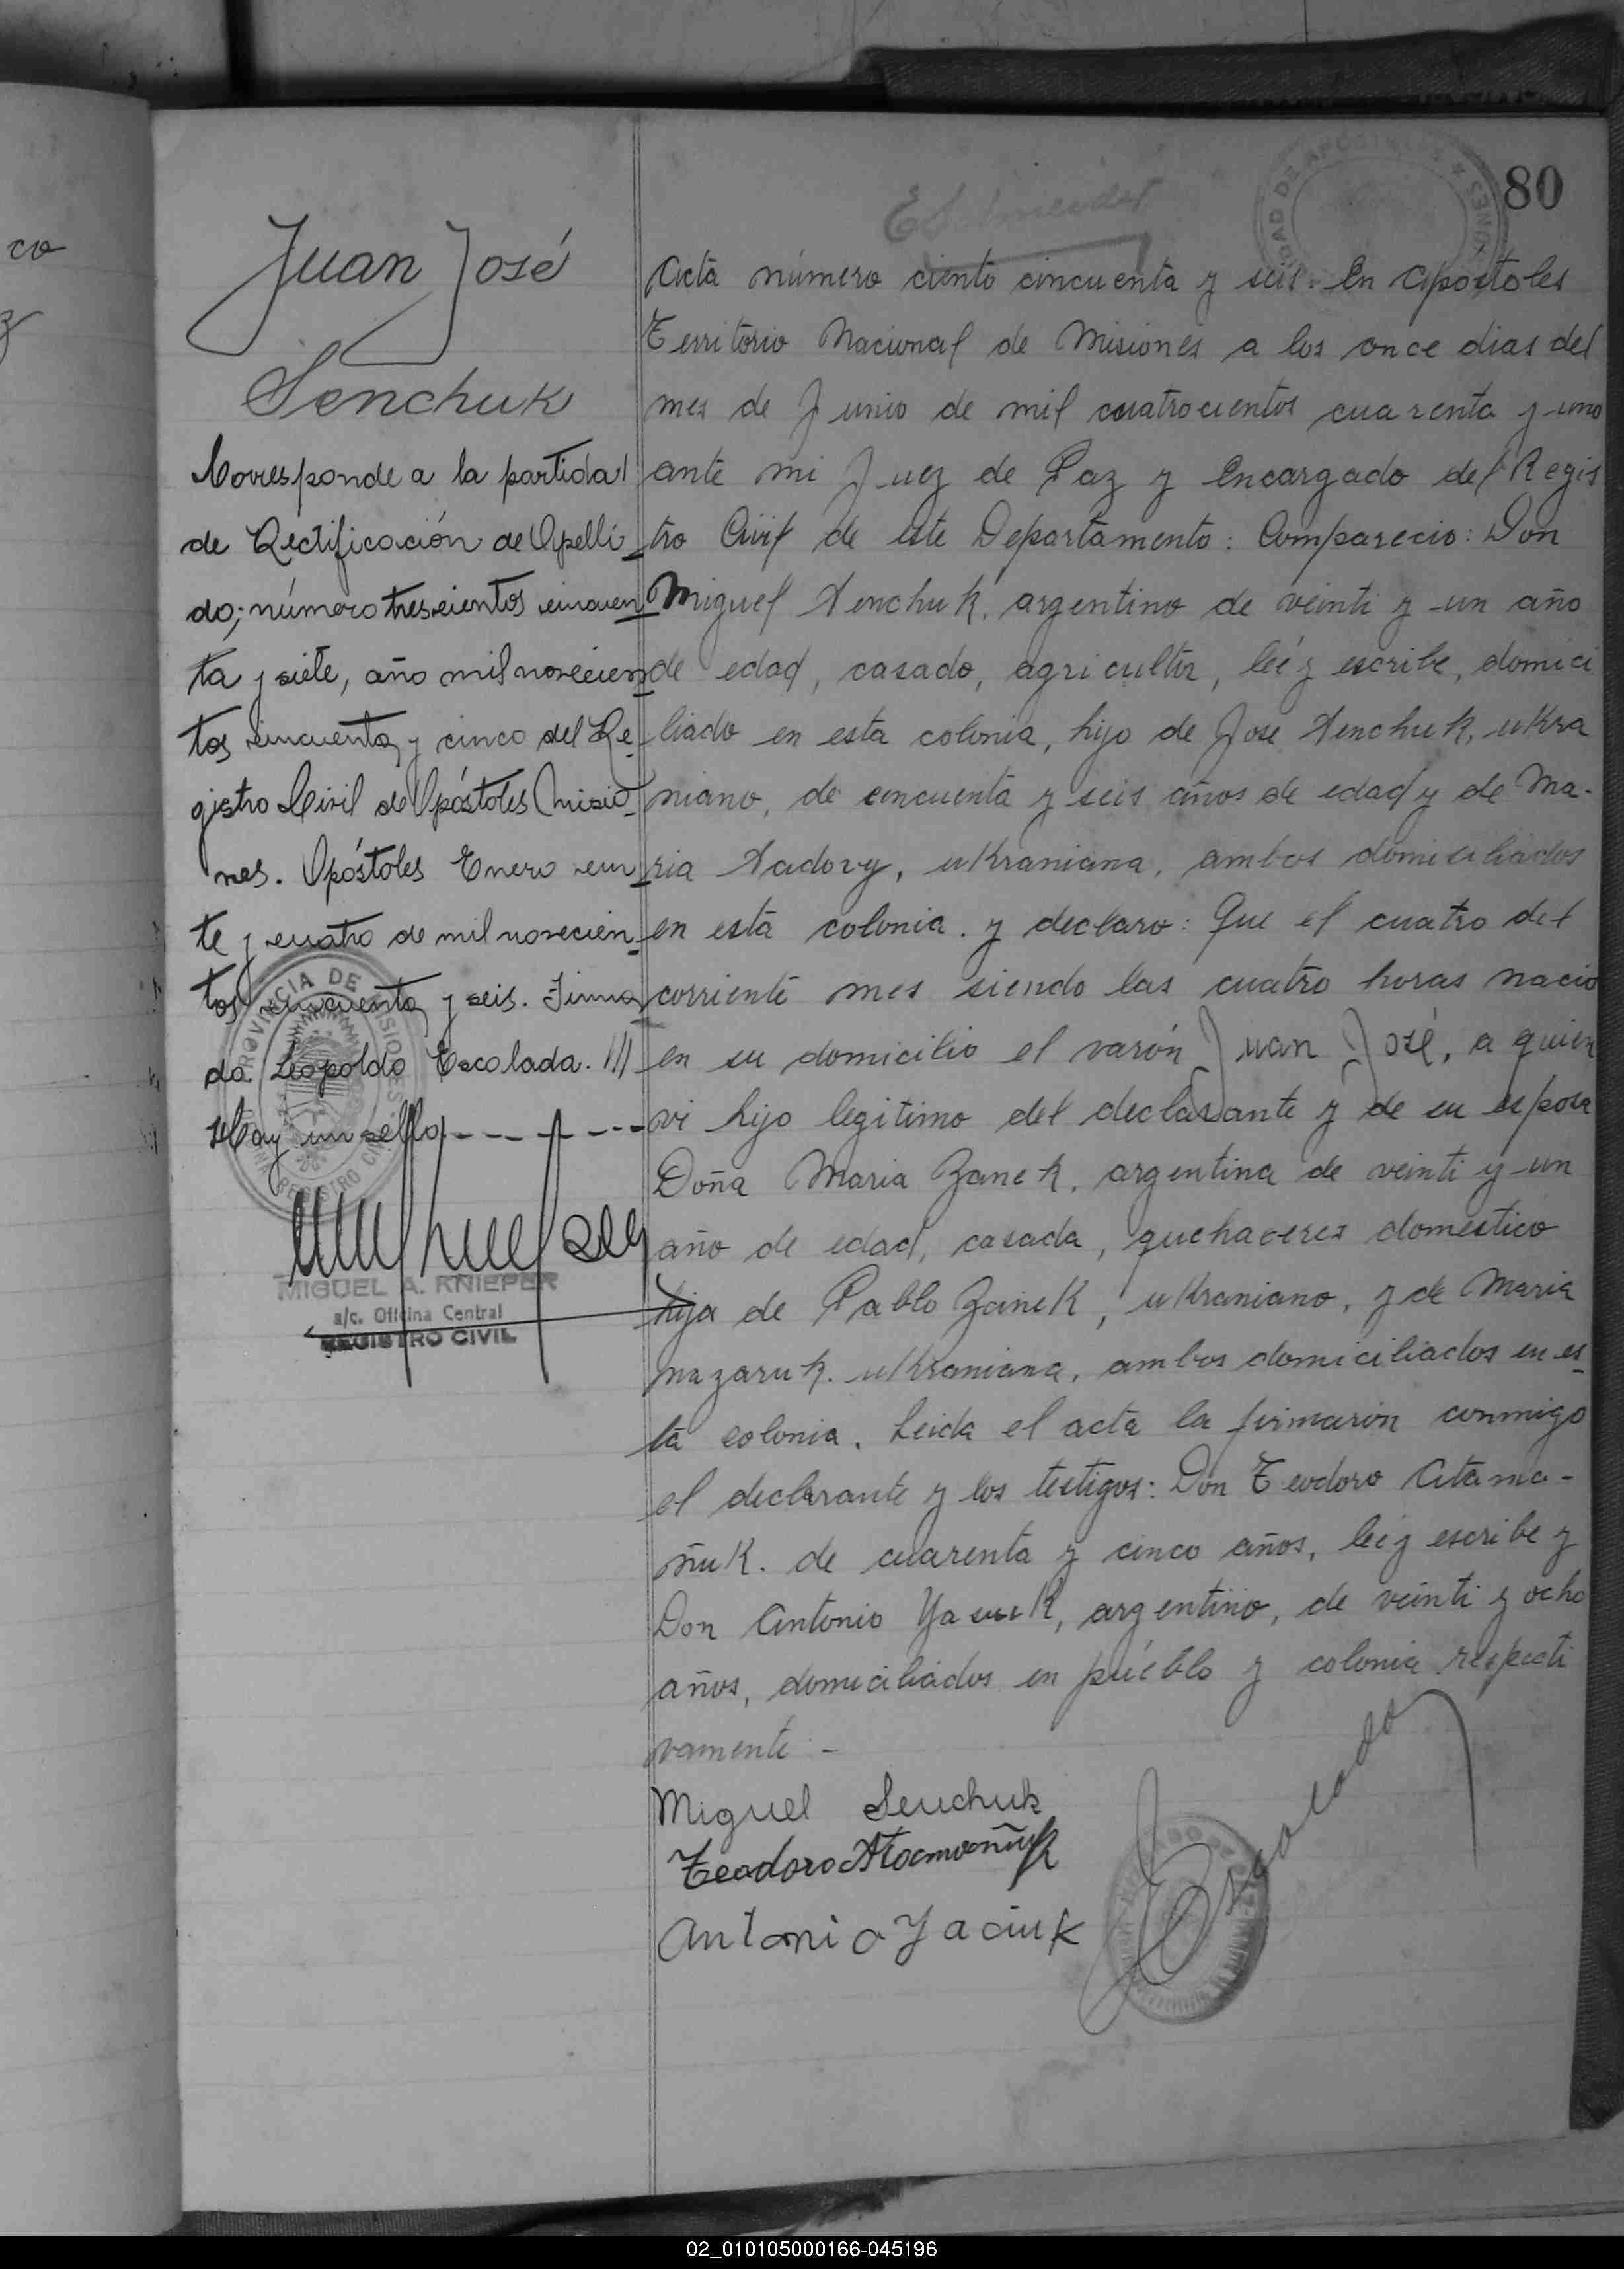 co
z
80
Juan José
Senchuk
Corresponde a la partida
de Rectificación de Apelli-
do; número trescientos cincuen-
ta y siete, año mil novecien-
tos cincuenta y cinco del Re-
gistro Civil de Apóstoles (Misio-
nes. Apóstoles Enero vein-
te y cuatro de mil novecien-
tos cincuenta y seis. Firma-
do Leopoldo Escalada. ///
Hay un sello.- - - - - - -
PROVINCIA DE MISIONES
REGISTRO CIVIL
MIGUEL A. KNIEPER
a/c. Oficina Central
REGISTRO CIVIL
Acta número ciento cincuenta y seis. En Apostoles
Territorio Nacional de Misiones a los once dias del
mes de Junio de mil cuatrocientos cuarenta y uno
ante mi Juez de Paz y Encargado del Regis
tro Civil de este Departamento: Comparecio: Don
Miguel Senchuk, argentino de veinti y un año
de edad, casado, agricultor, leé y escribe, domici
liado en esta colonia, hijo de Jose Senchuk, ukra
niano, de cincuenta y seis años de edad y de Ma-
ria Sadovy, ukraniana, ambos domiciliados
en esta colonia. y declaro: Que el cuatro del
corriente mes siendo las cuatro horas nacio
en su domicilio el varón Juan José, a quien
vi hijo legitimo del declarante y de su esposa
Doña Maria Zanek, argentina de veinti y un
año de edad, casada, quehaceres domestico
hija de Pablo Zanek, ukraniano, y de Maria
Nazaruk. ukraniana, ambos domiciliados en es-
ta colonia. Leida el acta la firmaron conmigo
el declarante y los testigos: Don Teodoro Atama-
ñuk. de cuarenta y cinco años, leé y escribe y
Don Antonio argentino, de veinti y ocho
años, domiciliados en pueblo y colonia respecti
vamente -
Miguel Senchuk
Teodoro Atamañuk
Antonio Yaciuk
Escalada
02_010105000166-045196